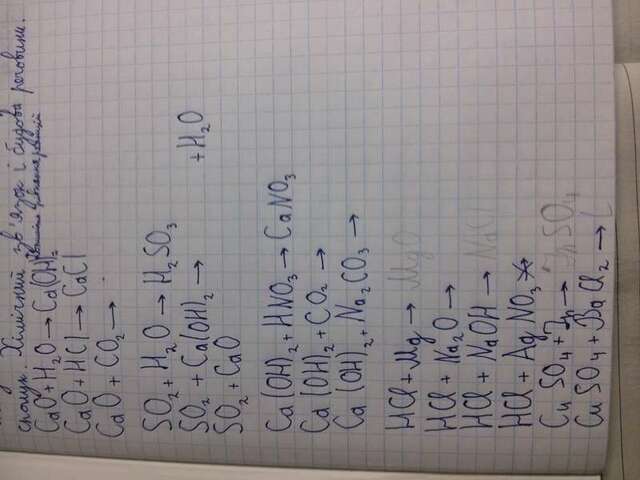 сполук. Хімічний зв'язок і будова речовини.
CaO + H₂O → Ca(OH)₂
CaO + HCl → CaCl
CaO + CO₂ →
SO₂ + H₂O → H₂SO₃
SO₂ + Ca(OH)₂ → + H₂O
SO₂ + CaO
Ca(OH)₂ + HNO₃ → CaNO₃
Ca(OH)₂ + CO₂ →
Ca(OH)₂ + Na₂CO₃ →
HCl + Mg → MgO
HCl + Na₂O →
HCl + NaOH → NaCl
HCl + AgNO₃
CuSO₄ + Zn → ZnSO₄
CuSO₄ + BaCl₂ →